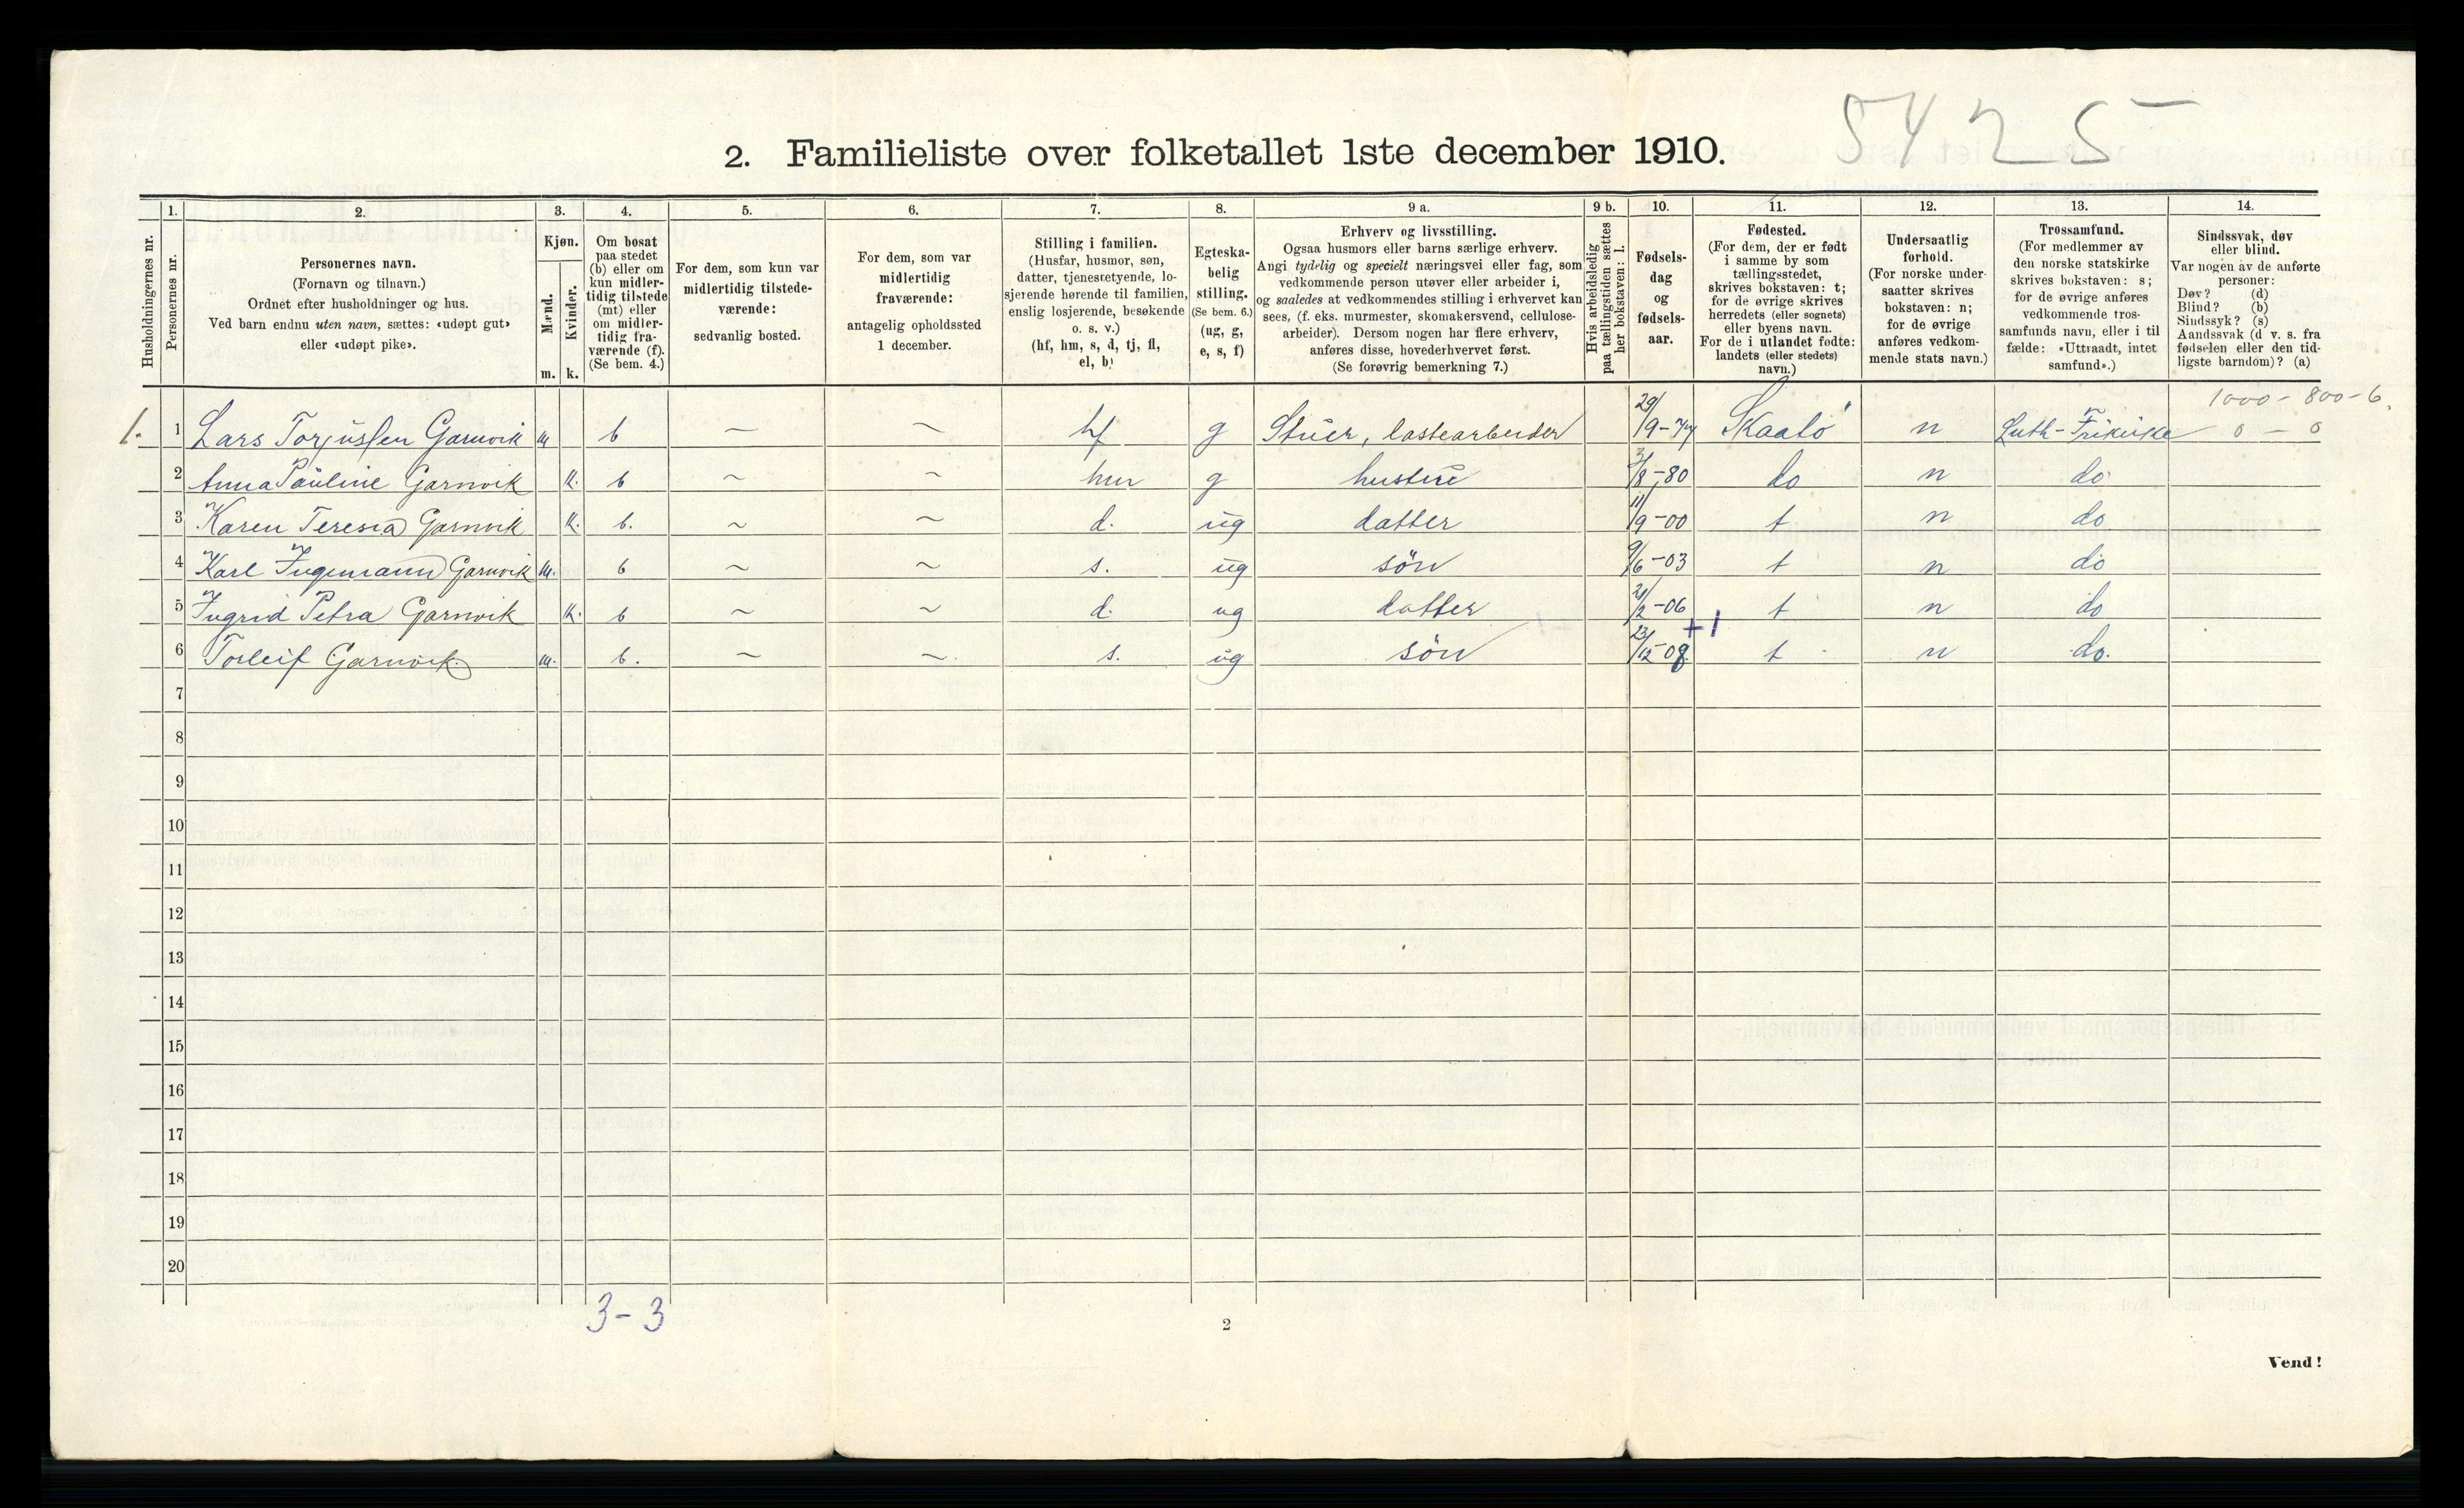 5425
2. Familieliste over folketallet 1ste december 1910.
Husholdningernes nr.
1. Personernes nr.
2. Personernes navn. (Fornavn og tilnavn.) Ordnet efter husholdninger og hus. Ved barn endnu uten navn, sættes: «udøpt gut» eller «udøpt pike».
3. Kjøn. Mænd. m. Kvinder. k.
4. Om bosat paa stedet (b) eller om kun midlertidig tilstede (mt) eller om midlertidig fraværende (f). (Se bem. 4.)
5. For dem, som kun var midlertidig tilstedeværende: sedvanlig bosted.
6. For dem, som var midlertidig fraværende: antagelig opholdssted 1 december.
7. Stilling i familien. (Husfar, husmor, søn, datter, tjenestetyende, losjerende hørende til familien, enslig losjerende, besøkende o. s. v.) (hf, hm, s, d, tj, fl, el, b)
8. Egteskabelig stilling. (Se bem. 6.) (ug, g, e, s, f)
9 a. Erhverv og livsstilling. Ogsaa husmors eller barns særlige erhverv. Angi tydelig og specielt næringsvei eller fag, som vedkommende person utøver eller arbeider i, og saaledes at vedkommendes stilling i erhvervet kan sees, (f. eks. murmester, skomakersvend, cellulosearbeider). Dersom nogen har flere erhverv, anføres disse, hovederhvervet først. (Se forøvrig bemerkning 7.)
9 b. Hvis arbeidsledig paa tællingstiden sættes her bokstaven: l.
10. Fødselsdag og fødselsaar.
11. Fødested. (For dem, der er født i samme by som tællingsstedet, skrives bokstaven: t; for de øvrige skrives herredets (eller sognets) eller byens navn. For de i utlandet fødte: landets (eller stedets) navn.)
12. Undersaatlig forhold. (For norske undersaatter skrives bokstaven: n; for de øvrige anføres vedkommende stats navn.)
13. Trossamfund. (For medlemmer av den norske statskirke skrives bokstaven: s; for de øvrige anføres vedkommende trossamfunds navn, eller i tilfælde: «Uttraadt, intet samfund».)
14. Sindssvak, døv eller blind. Var nogen av de anførte personer: Døv? (d) Blind? (b) Sindssyk? (s) Aandssvak (d v. s. fra fødselen eller den tidligste barndom)? (a)
1000 - 800 - 6.
1. 1 Lars Torjussen Garnvik m b — ~ hf g Stuer, lastearbeider 29/9-74 Skaatö n Luth-Frikirke 0 - 0
2 Anna Pauline Garnvik k. b ~ ~ hm g hustru 3/8-80 do n do
3 Karen Teresia Garnvik k. b. ~ ~ d. ug datter 11/9-00 t n do
4 Karl Ingemann Garnvik m. b ~ ~ s. ug sön 9/6-03 t n do
5 Ingrid Petra Garnvik k. b ~ ~ d. ug datter 21/2-06 t n do
+1
6 Torleif Garnvik m. b. ~ ~ s. ug sön 23/12-08 t n do.
7
8
9
10
11
12
13
14
15
16
17
18
19
20
3-3
2
Vend!